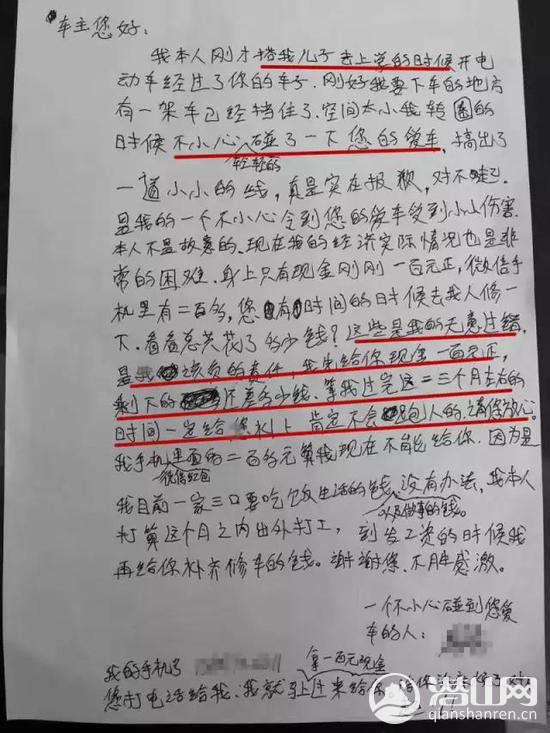 车主您好:
我本人刚才搭我儿子去上学的时候开电
动车经过了你的车子.刚好我要下车的地方
有一架车已经挡住了.空间太小我转圈的
时候不小心碰了一下您的爱车,搞出了
轻轻的
一道小小的线,真是实在报歉,对不起.
是我的一个不小心令到您的爱车受到小小伤害.
本人不是故意的.现在我的经济实际情况也是非
常的困难.身上只有现金刚刚一百元正,微信手
机里有二百多,您有时间的时候去找人修一
下.看看总共花了多少钱?这些是我的无意过错,
是我该负的责任,我先给你现金一百元正,
剩下的还差多少钱.等我过完这二三个月左右的
时间一定给您补上肯定不会跑人的.请你放心。
我手机里面的二百多元算我现在不能给你.因为是
微信红包
我目前一家三口要吃饭生活的钱,没有办法,我本人
以及做事的钱。
打算这个月之内出外打工,到发工资的时候我
再给你补齐修车的钱。谢谢您、不胜感激。
一个不小心碰到您爱
车的人:
我的手机了
拿一百元现金
您打电话给我.我就马上过来给你
潜山网
qianshanren.cn